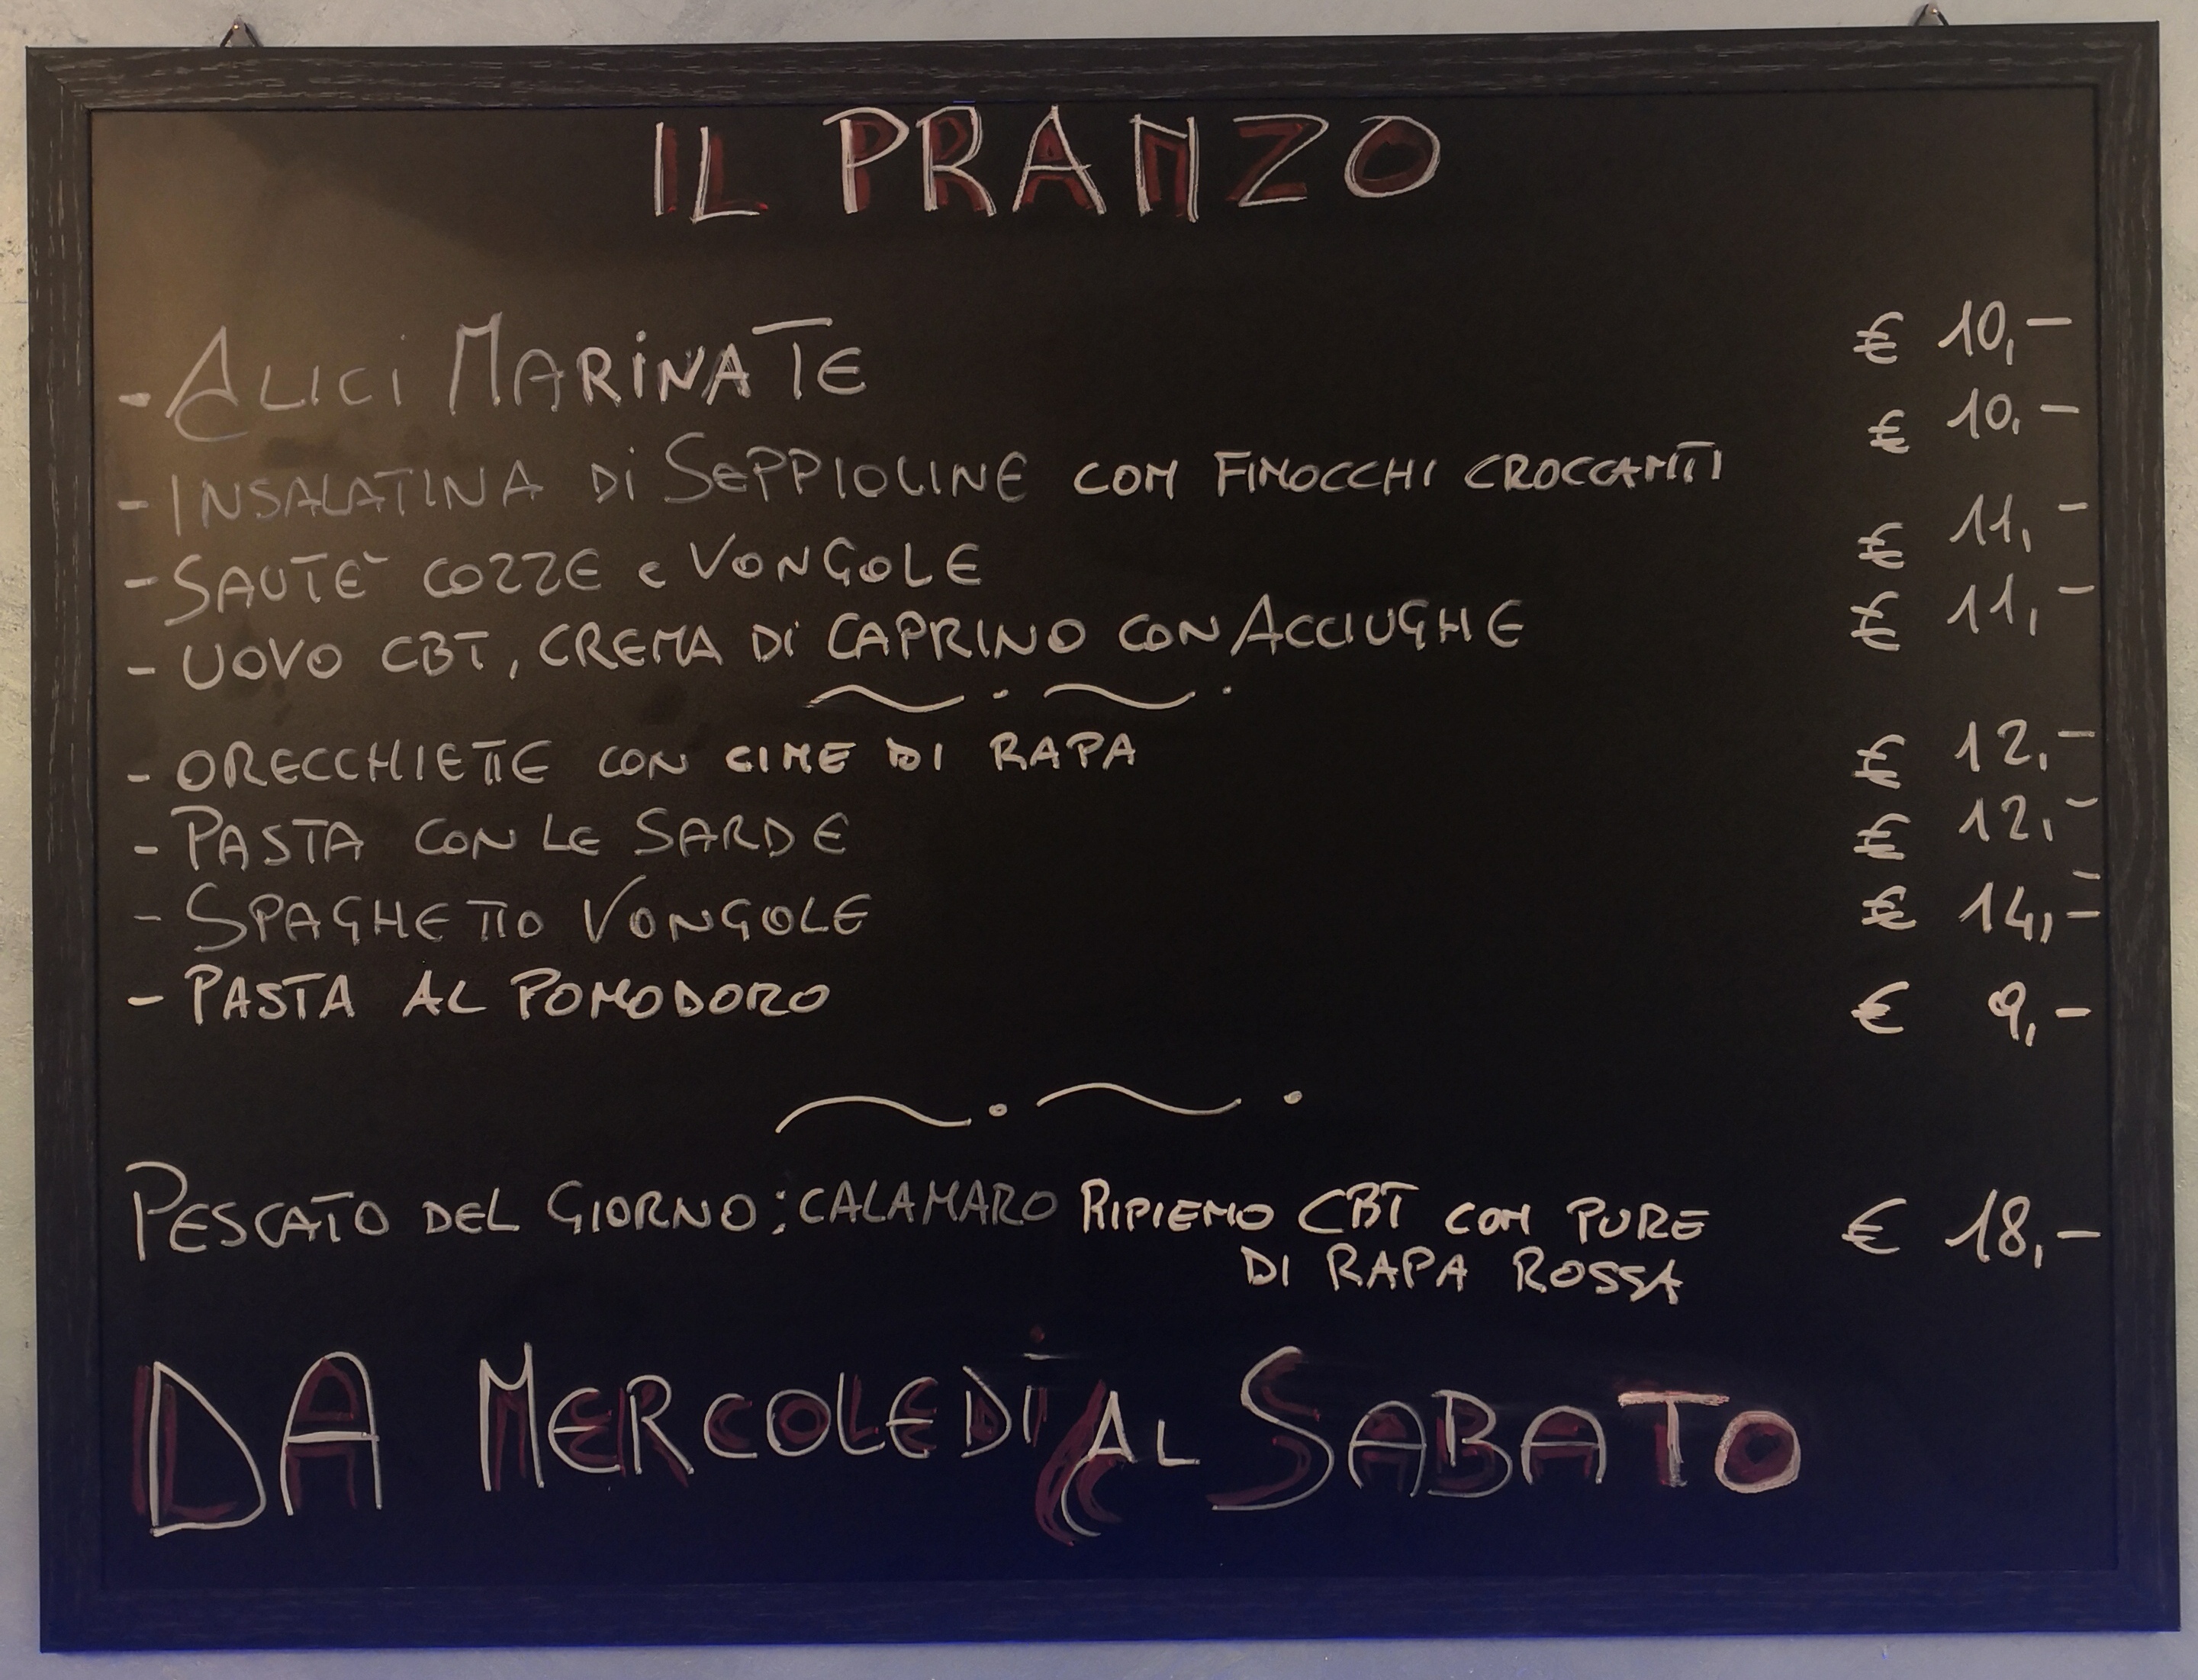 IL PRANZO
- ALICI MARINATE € 10,-
- INSALATINA DI SEPPIOLINE CON FINOCCHI CROCCANTI € 10,-
- SAUTÈ COZZE e VONGOLE € 11,-
- UOVO CBT, CREMA DI CAPRINO CON ACCIUGHE € 11,-
- ORECCHIETTE CON CIME DI RAPA € 12,-
- PASTA CON LE SARDE € 12,-
- SPAGHETTO VONGOLE € 14,-
- PASTA AL POMODORO € 9,-
PESCATO DEL GIORNO: CALAMARO RIPIENO CBT CON PURE € 18,-
DI RAPA ROSSA
DA MERCOLEDI AL SABATO